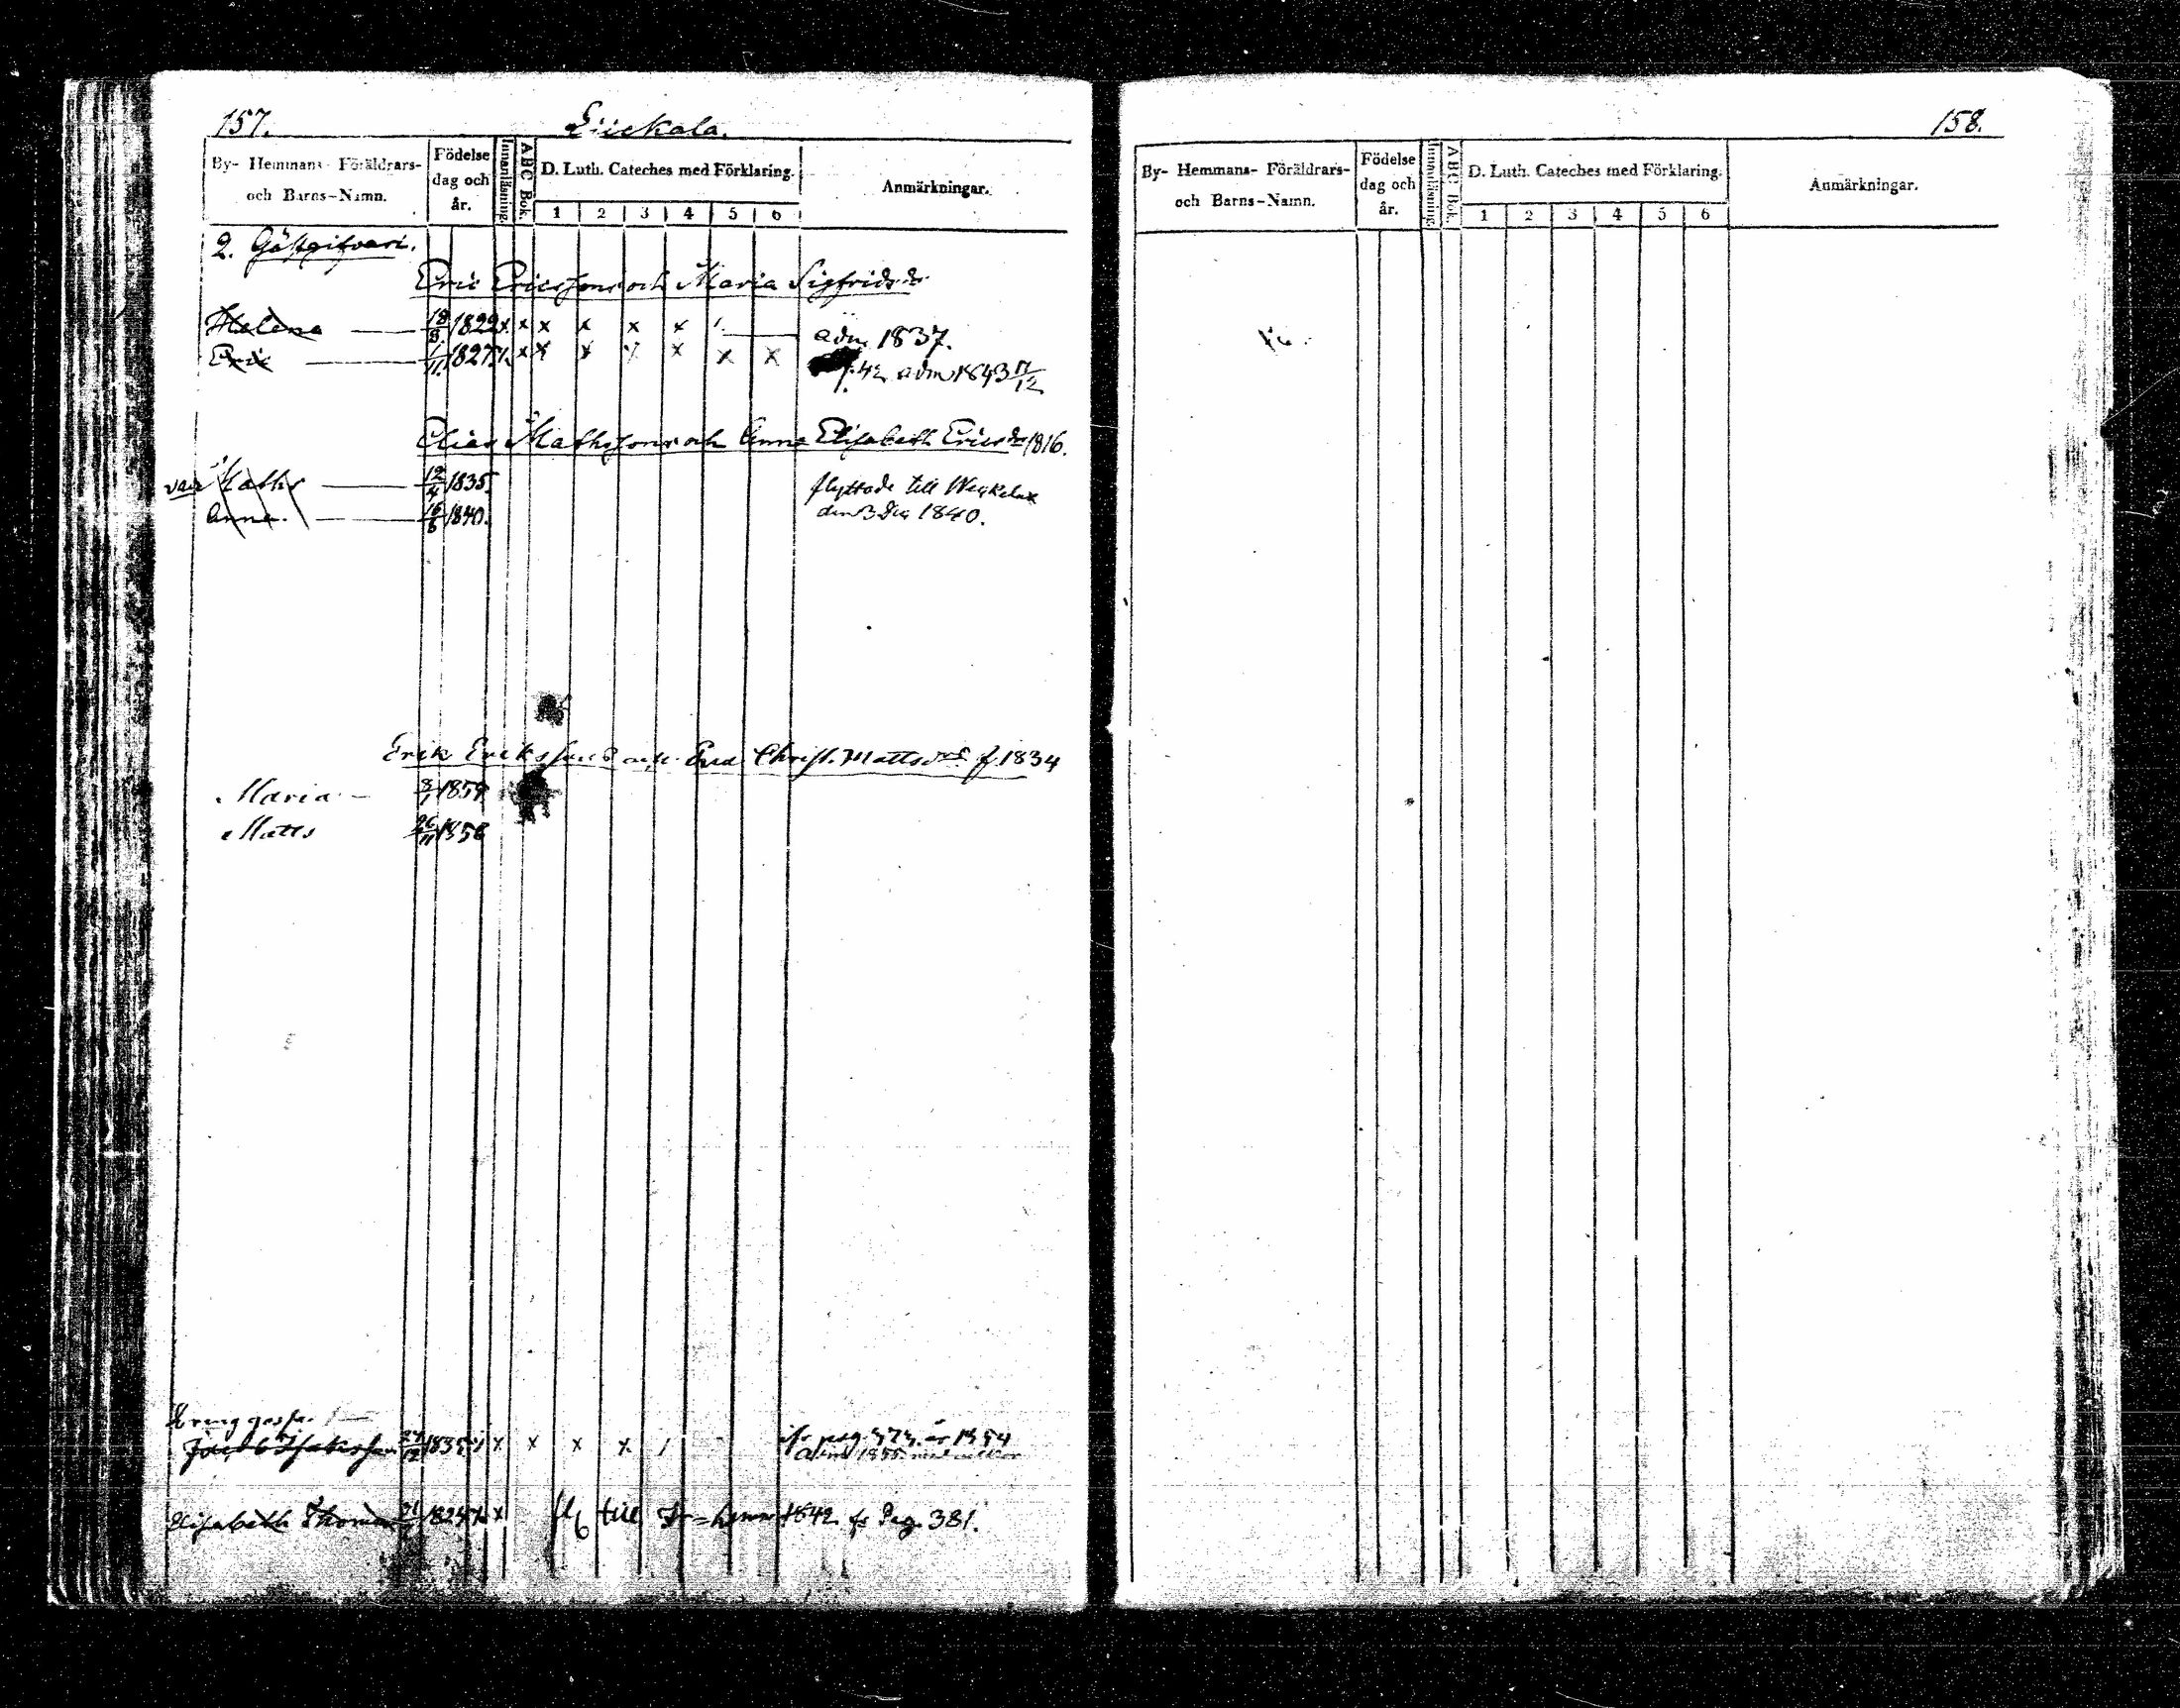 157.
Liickala.
By- Hemmans- Föräldrars- och Barns-Namn.
Födelse dag och år.
Innanläsning.
ABC Bok.
D. Luth. Cateches med Förklaring.
1 2 3 4 5 6
Anmärkningar.
2. Gästgifvari.
Eric Ericssons och Maria Sigfridsdr
Helena 18/9 1822 x x x x x x adm 1837.
Erik 1/11 1827 x x x x x x x 42 adm 1843 17/12
Elias Mathssons och Anna Elisabeth Ericsdr 1816.
Maths 12/4 1835. flyttade till Weckelax
Anna. 16/6 1840. den 3 Dec 1840.
Erik Erikssons och Eva Christ. Mattsdr f. 1834
Maria 8/1 1859
Matts 26/11 1856
Jacob Isaksson 24/12 1835 x x x x pag. 373. år 1854
Adm 1855
Elisabeth Thomasdr 21 1824 x till 1842 fr Pag. 381.
158.
By- Hemmans- Föräldrars- och Barns-Namn.
Födelse dag och år.
Innanläsning.
ABC Bok.
D. Luth. Cateches med Förklaring.
1 2 3 4 5 6
Anmärkningar.